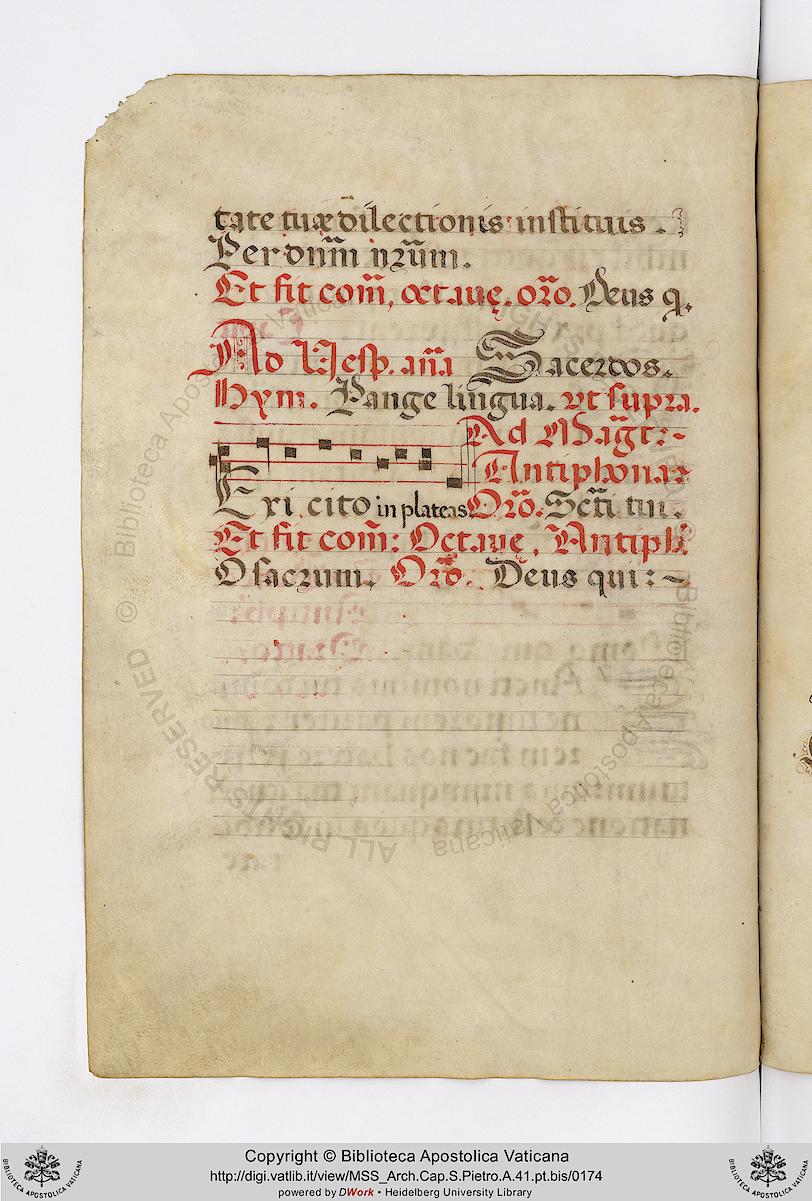 tate tuæ dilectionis instituis.
Per dnm̄ nr̄um.
Et fit com̄, octauę. or̄o. Deus q.
Ad Vesp. an̄a Sacerdos.
Hym. Pange lingua. vt supra.
Ad Mag̃t:~
Antiphona:
Exi cito in plateas Or̄o. Sc̄ti tui.
Et fit com̄: Octauę, Antiph.
O sacrum, Or̄o. Deus qui:~
© Biblioteca Apostolica Vaticana ALL RIGHTS RESERVED
Copyright © Biblioteca Apostolica Vaticana
http://digi.vatlib.it/view/MSS_Arch.Cap.S.Pietro.A.41.pt.bis/0174
powered by DWork • Heidelberg University Library
BIBLIOTECA APOSTOLICA VATICANA
BIBLIOTECA APOSTOLICA VATICANA